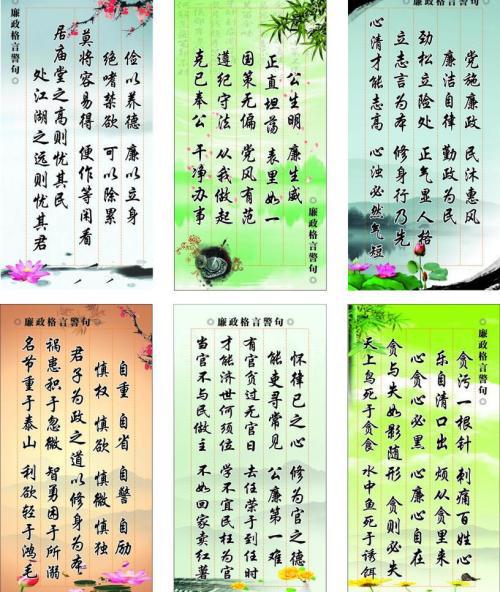 廉政格言警句
俭以养德 廉以立身
绝嗜禁欲 可以除累
莫将容易得 便作等闲看
居庙堂之高则忧其民
处江湖之远则忧其君
廉政格言警句
公生明 廉生威
正直坦荡 表里如一
国策无偏 党风有范
遵纪守法 从我做起
克已奉公 干净办事
廉政格言警句
党施廉政 民沐惠风
廉洁自律 勤政为民
劲松立险处 正气显人格
立志言为本 修身行乃先
心清才能志高 心浊必然气短
廉政格言警句
自重 自省 自警 自励
慎权 慎欲 慎微 慎独
君子为政之道以修身为本
祸患积于忽微 智勇困于所溺
名节重于泰山 利欲轻于鸿毛
廉政格言警句
怀律已之心 修为官之德
能吏寻常见 公廉第一难
有官贫过无官日 去任荣于到任时
才能济世何须位 学不宜民枉为官
当官不与民做主 不如回家卖红薯
廉政格言警句
贪污一根针 刺痛百姓心
乐自清口出 烦从贪里来
心贪心必黑 心廉心自在
贪与失如影随形 贪则必失
天上鸟死于贪食 水中鱼死于诱饵